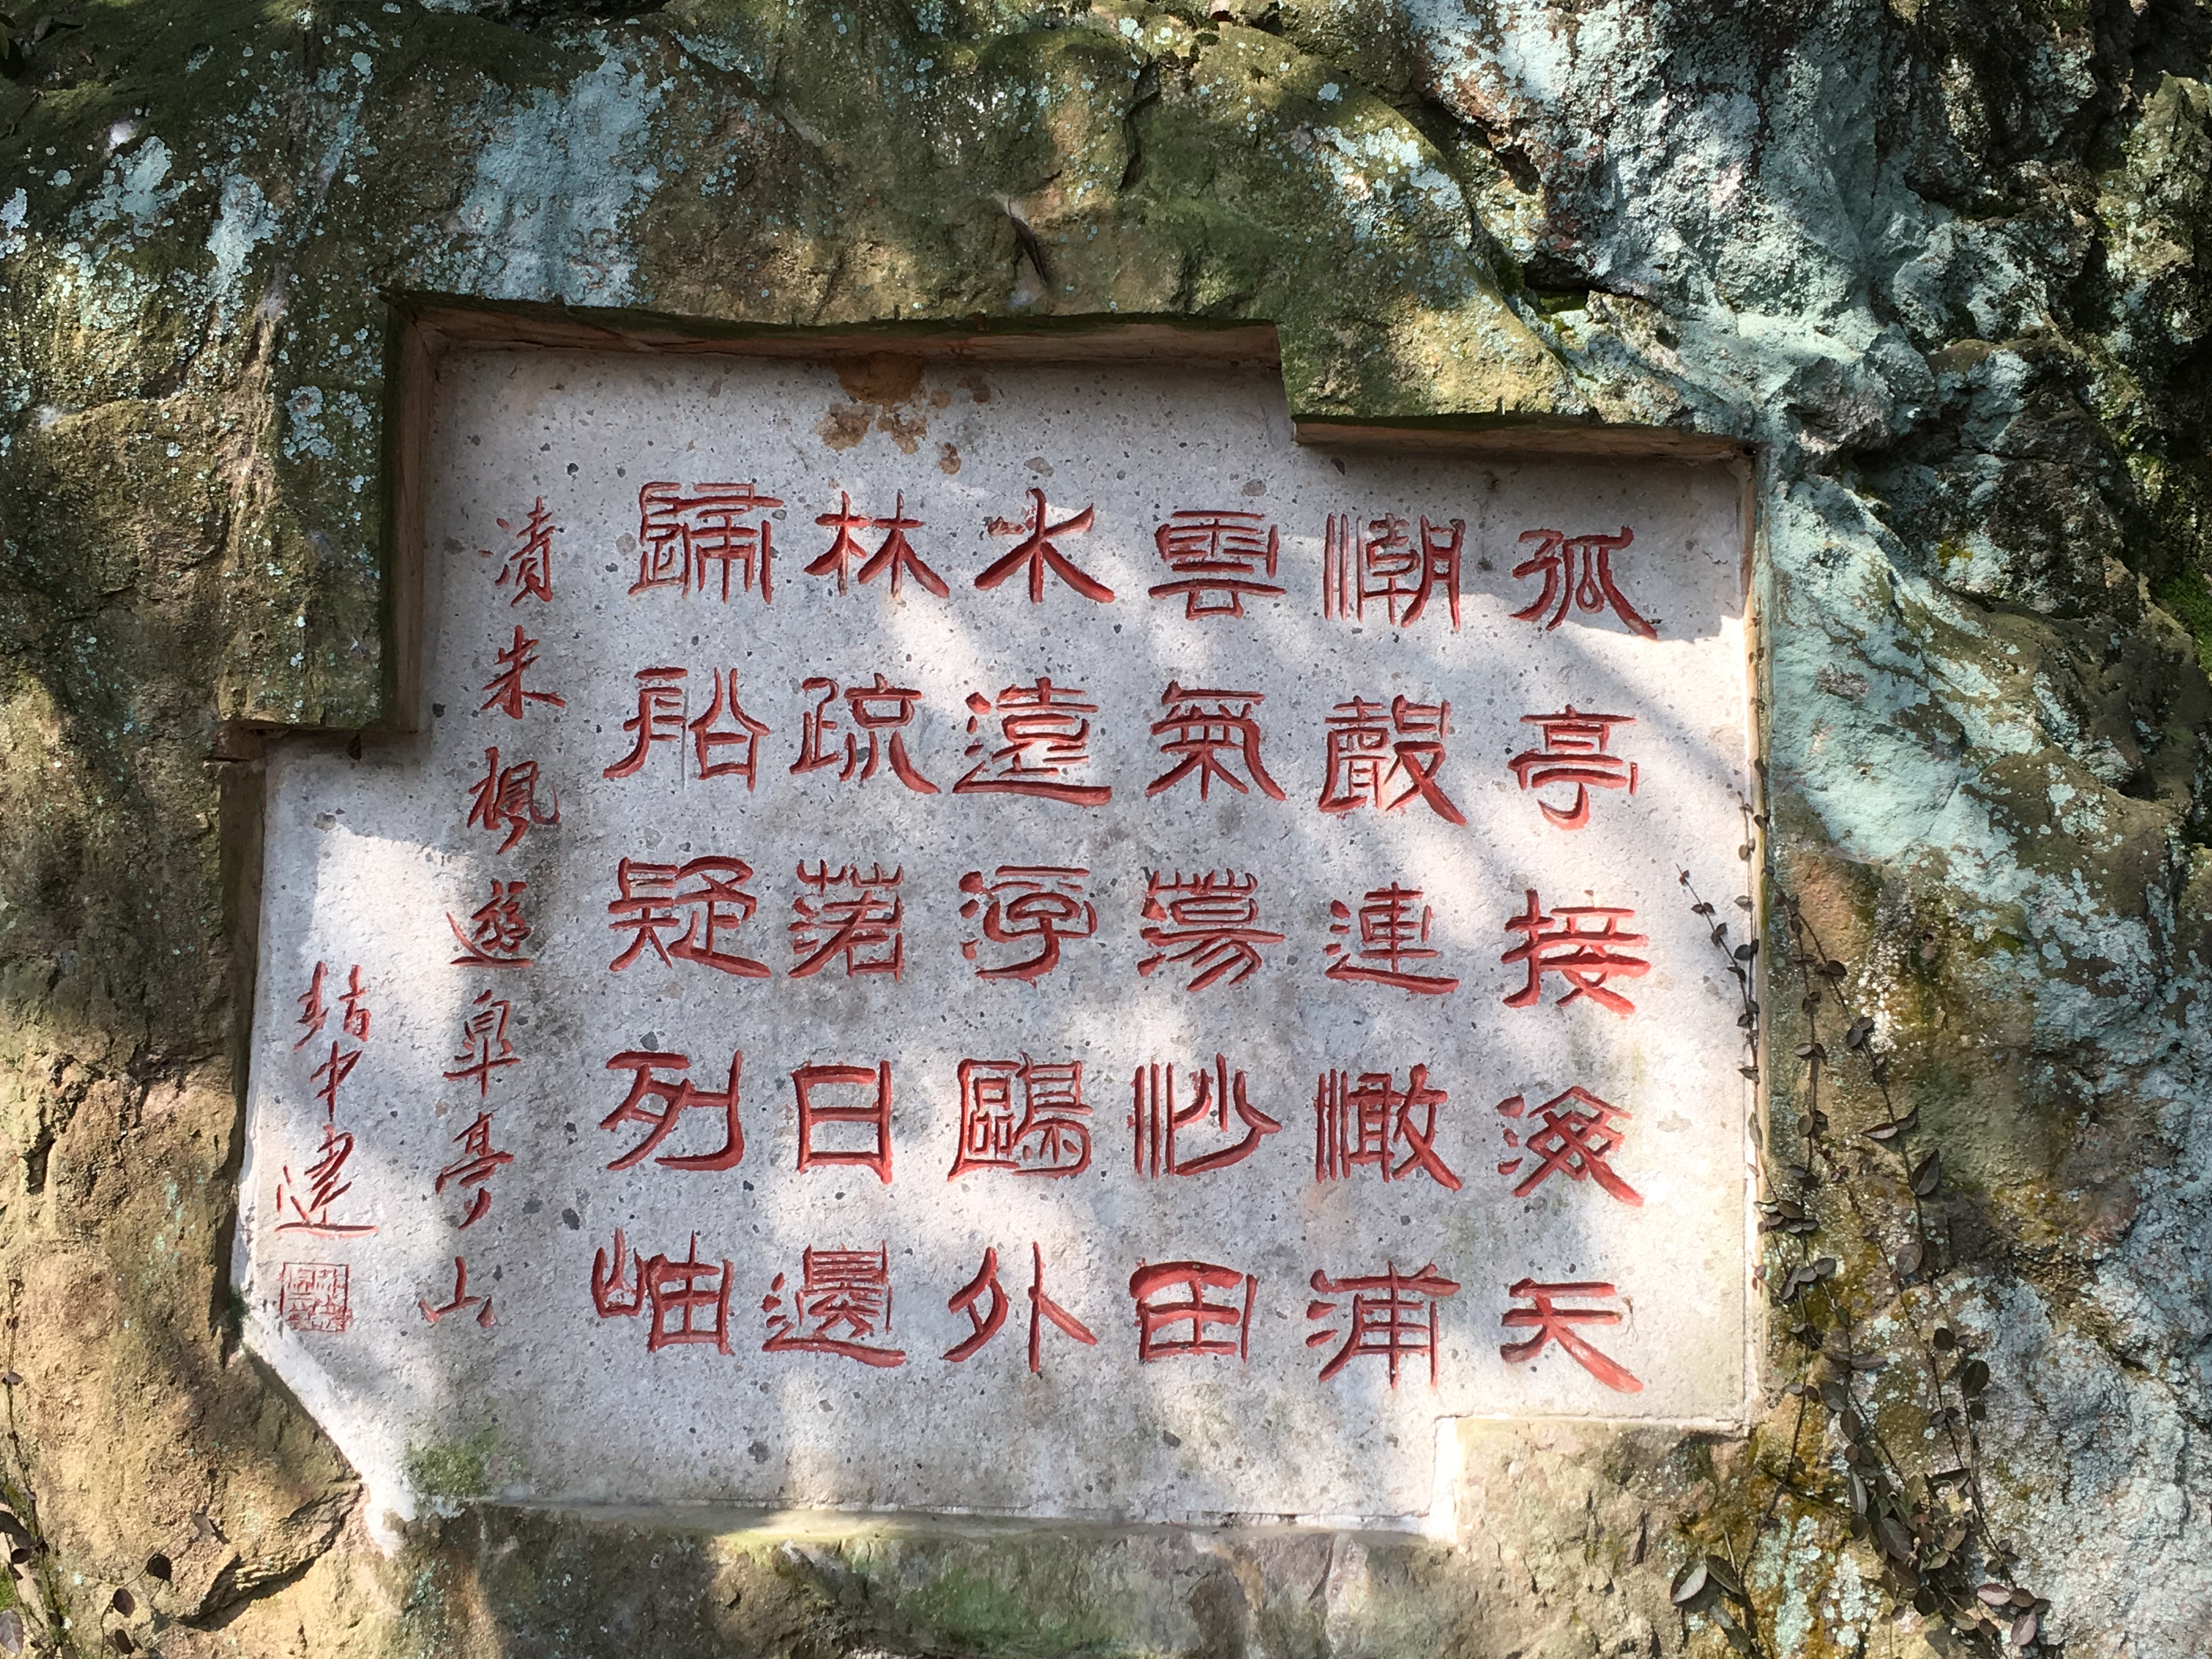 孤亭接海天
潮聲連澉浦
雲氣蕩沙田
水遠浮鷗外
林疏落日邊
歸船疑列岫
清朱楓遊皋亭山
中建